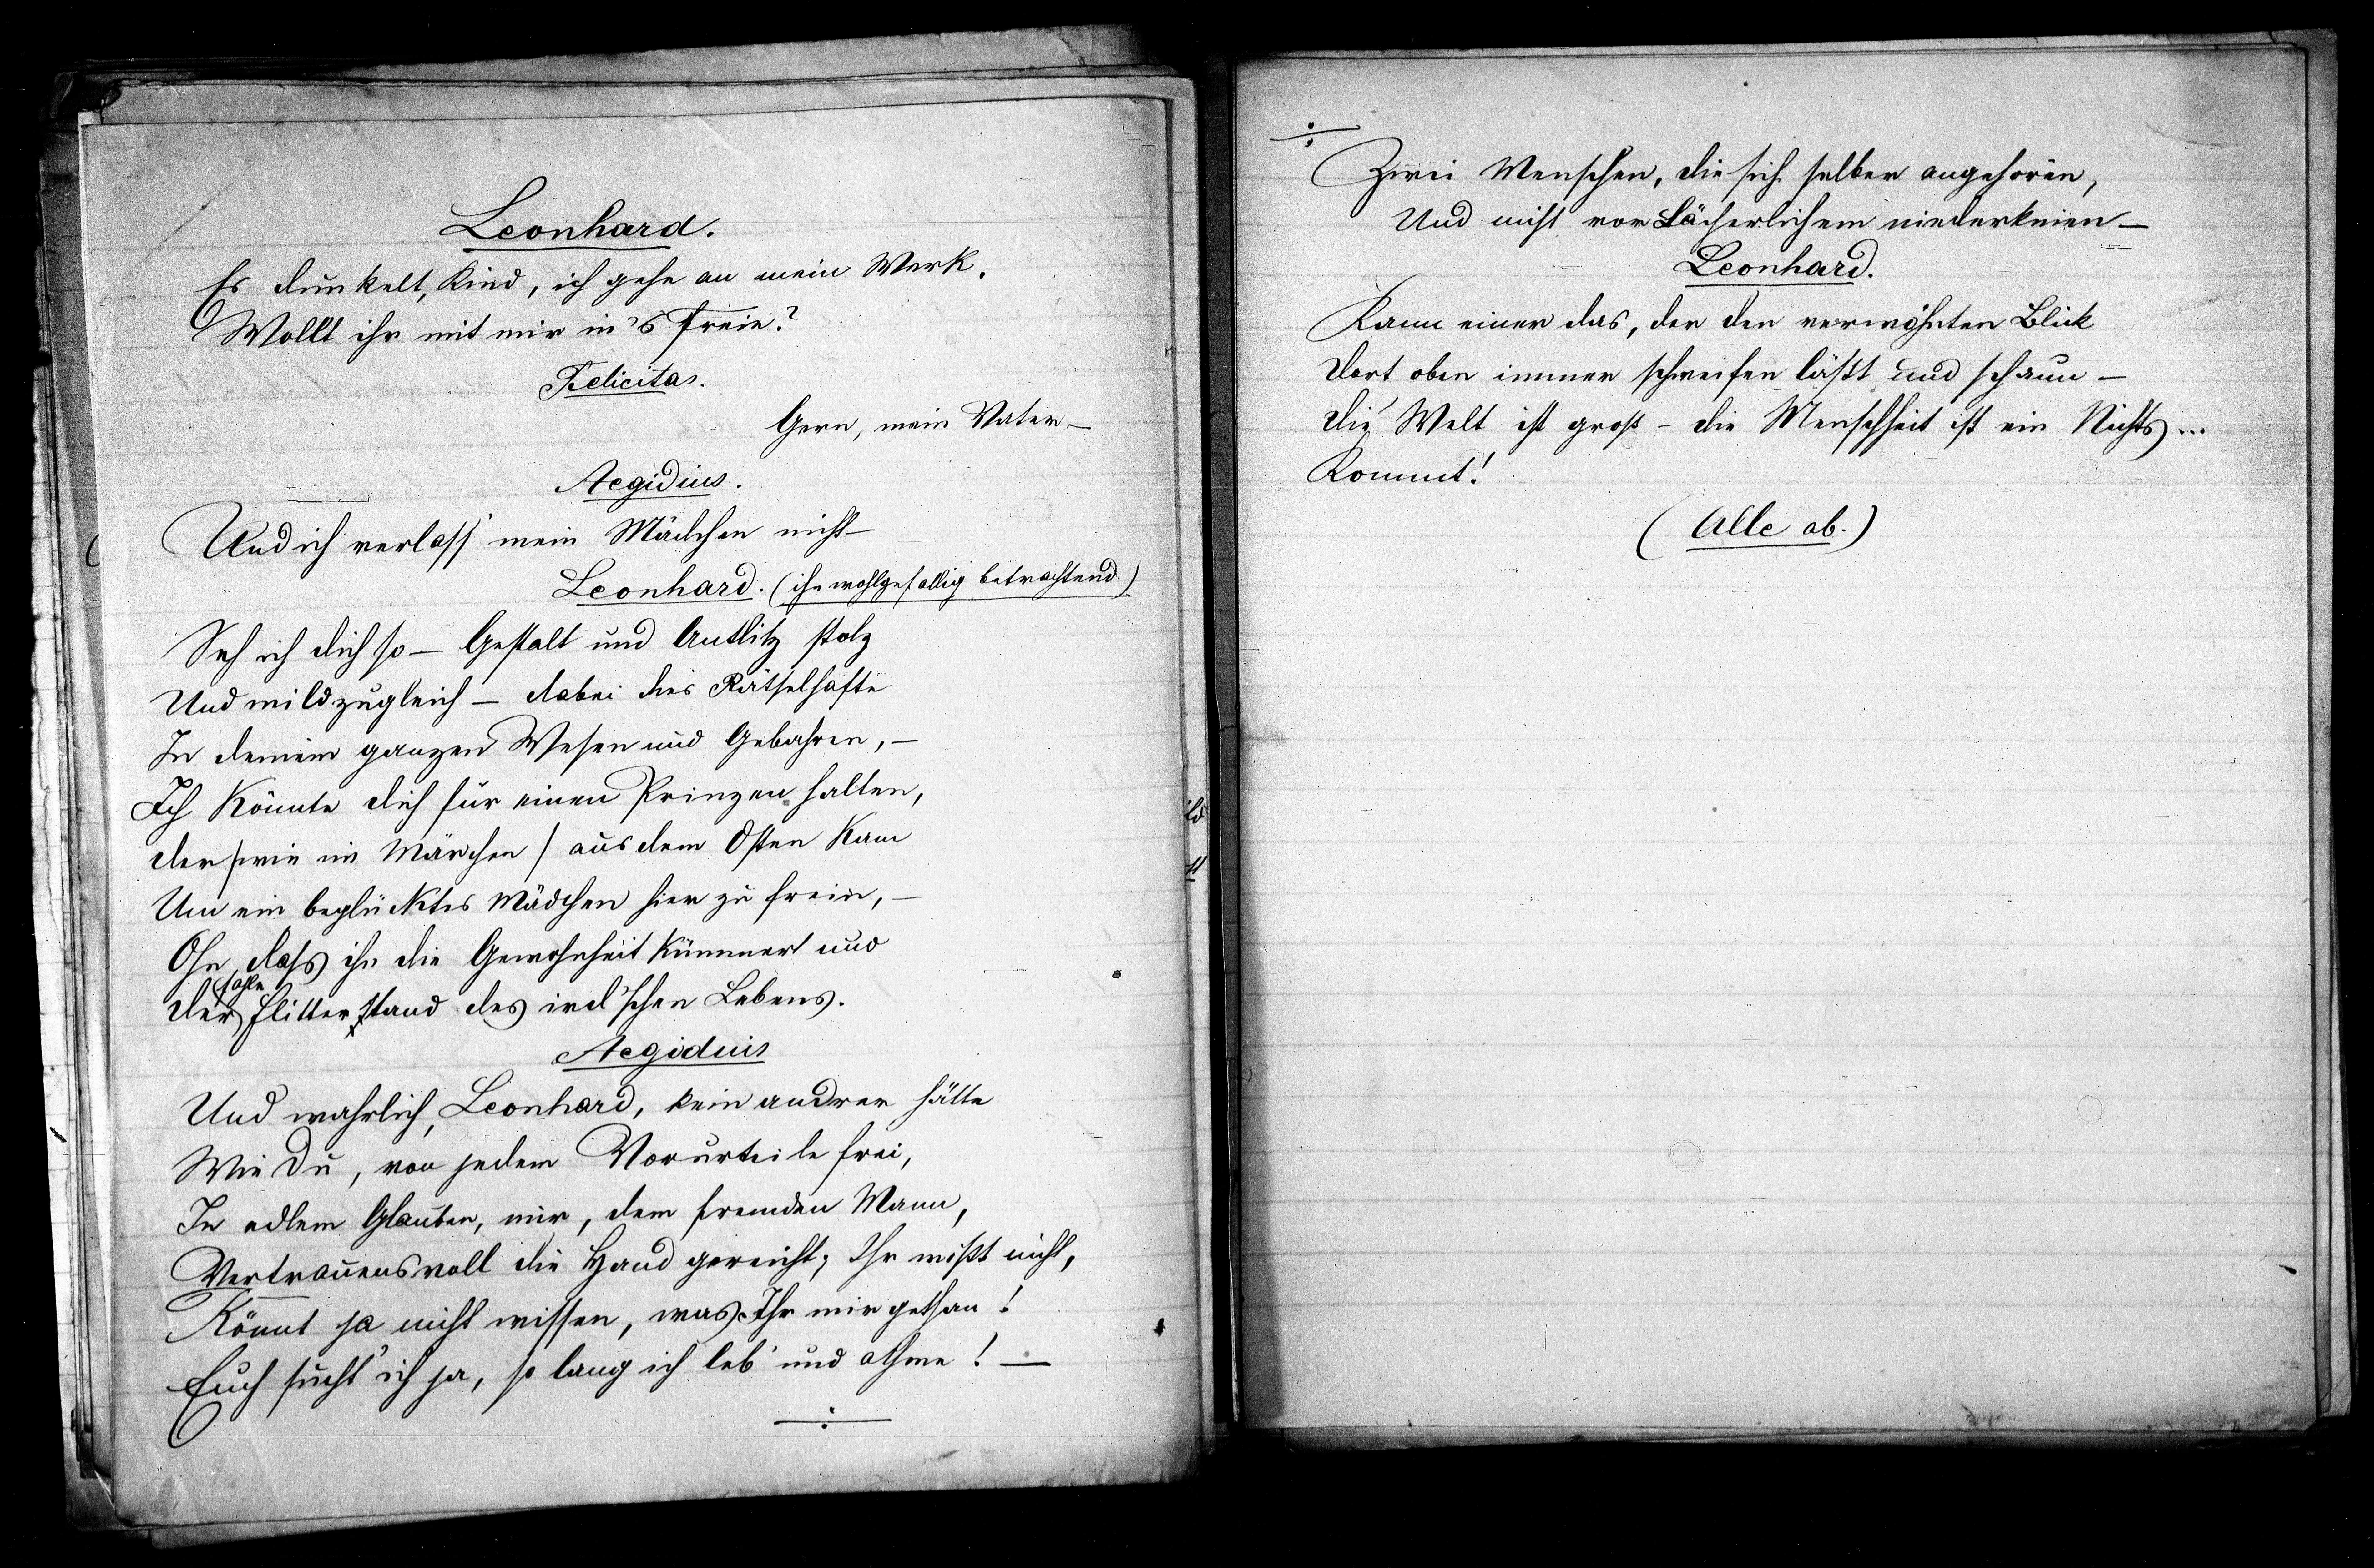 Leonhard.
Es dunkelt, Kind, ich gehe an mein Werk.
Wollt ihr mit mir in's Freie?
Felicitas.
Gern, mein Vater –
Aegidius.
Und ich verlass' mein Mädchen nicht –
Leonhard. (ihn wohlgefällig betrachtend)
Seh ich dich so – Gestalt und Antlitz stolz
Und mild zugleich – dabei dies Rätselhafte
In deinem ganzen Wesen und Gebahren, –
Ich könnte dich für einen Prinzen halten,
der / wie im Märchen / aus dem Osten kam
Um ein beglücktes Mädchen hier zu frein, –
Ohn, dass ihn die Gewohnheit kümmert und
hohle
der Flitterstand des ird'schen Lebens.
Aegidius
Und wahrlich, Leonhard, kein andrer hätte
Wie Du, von jedem Vorurteile frei,
In edlem Glauben, mir, dem fremden Mann,
Vertrauensvoll die Hand gereicht; Ihr wißt nicht,
Könnt ja nicht wissen, was Ihr mir gethan!
Euch sucht' ich ja, so lang ich leb' und athme! –
Zwei Menschen, die sich selber angehören,
Und nicht vor Lächerlichem niederknien –
Leonhard.
Kann einer das, der den verwöhnten Blick
Dort oben immer schweifen läßt und schaun –
die Welt ist groß – die Menschheit ist ein Nichts ...
Kommt!
(Alle ab.)